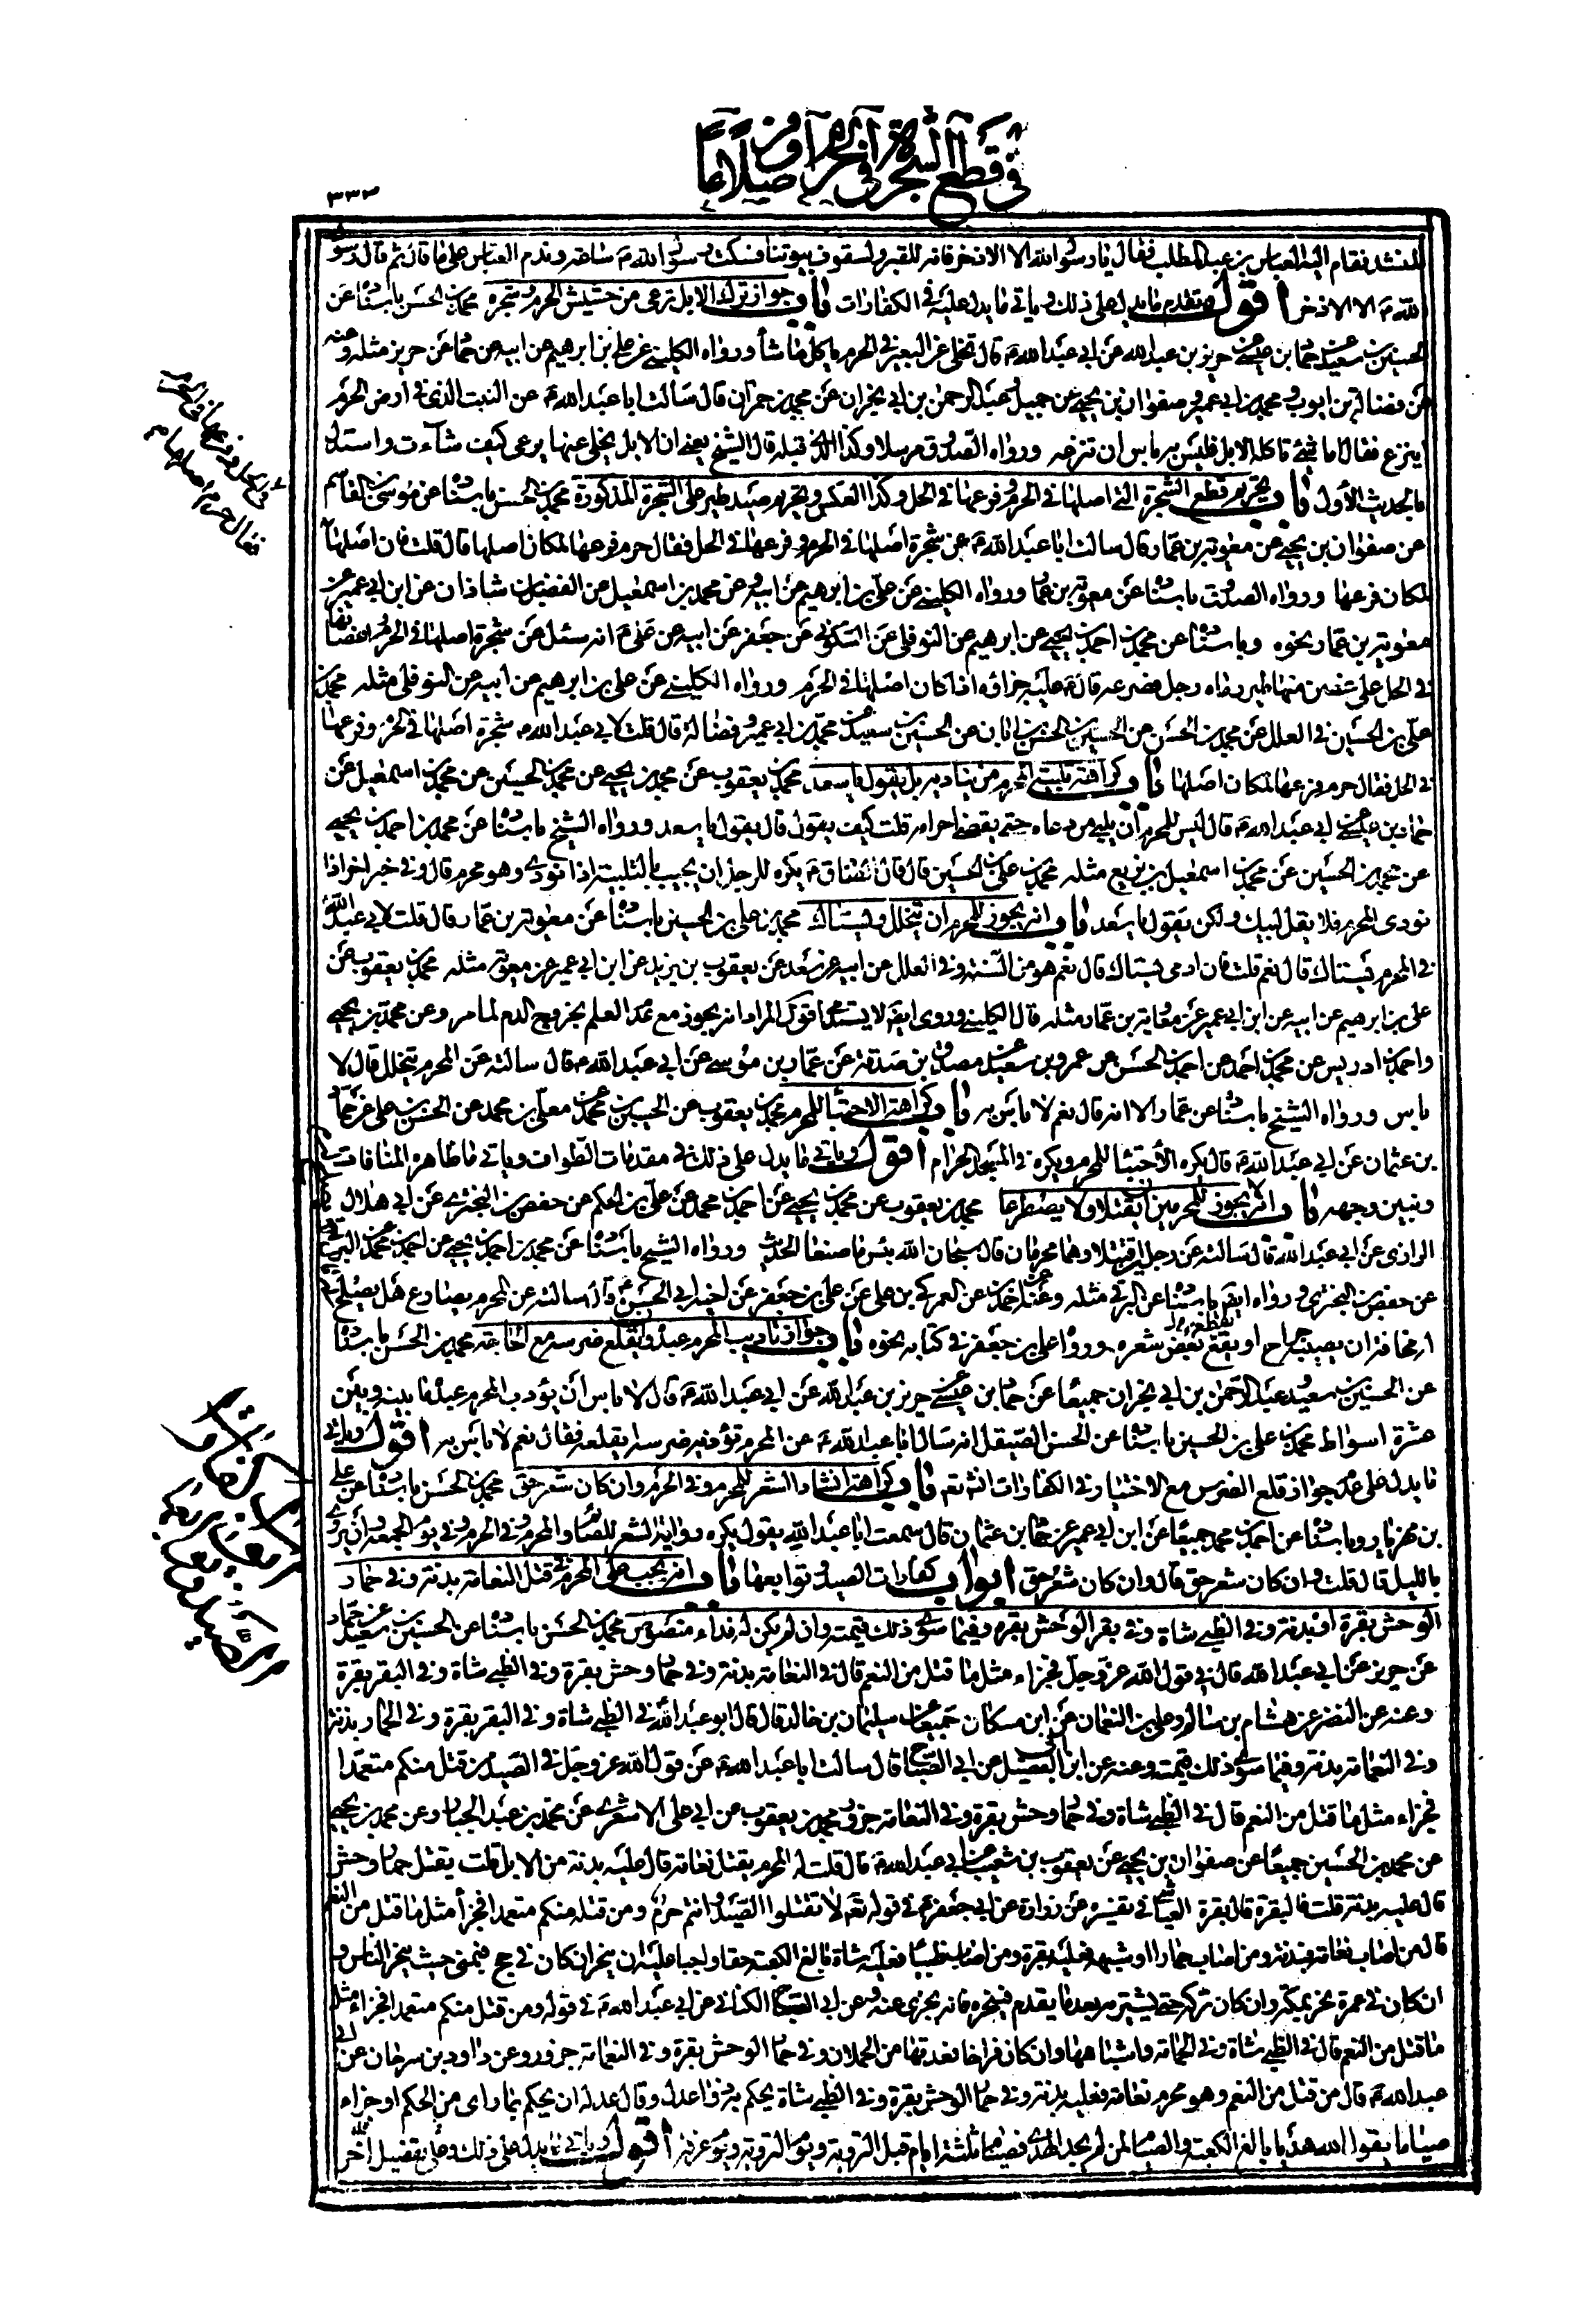 في قطع الشجرة في الحرم
٣٣٢
لمنشد فقام اليه العباس بن عبد المطلب فقال يا رسول الله الا الاذخر فانه للقبر ولسقوف بيوتنا فسكت رسول الله ص ساعة وندم العباس على ما قال ثم قال رسول
الله ص الا الاذخر اقول وتقدم ما يدل على ذلك وياتي ما يدل عليه في الكفارات باب جواز ترك الابل ترعى من حشيش الحرم وشجره محمد بن الحسن باسناده عن
الحسين بن سعيد عن حماد بن عيسى عن حريز بن عبد الله عن ابي عبد الله ع قال تخلى عن البعير في الحرم ياكل ما شاء ورواه الكليني عن علي بن ابرهيم عن ابيه عن حماد عن حريز مثله وعنه
عن فضالة بن ايوب ومحمد بن ابي عمير وصفوان بن يحيى عن جميل وعبد الرحمن بن ابي نجران عن محمد بن حمران قال سالت ابا عبد الله ع عن النبت الذي في ارض الحرم
اينزع فقال اما شيئ تاكله الابل فليس به باس ان تنزعه ورواه الصدوق مرسلا وكذا الذي قبله قال الشيخ يعني ان الابل يخلى عنها يرعى كيف شاءت واستدل
بالحديث الأول باب تحريم قطع الشجرة التي اصلها في الحرم وفرعها في الحل وكذا العكس وتحريم صيد طير على الشجرة المذكورة محمد بن الحسن باسناده عن موسى بن القاسم
عن صفوان بن يحيى عن معوية بن عمار قال سالت ابا عبد الله ع عن شجرة اصلها في الحرم وفرعها في الحل فقال حرم فرعها لمكان اصلها قال قلت فان اصلها
لمكان فرعها ورواه الصدوق باسناده عن معوية بن عمار ورواه الكليني عن علي بن ابرهيم عن ابيه وعن محمد بن اسمعيل عن الفضل بن شاذان عن ابن ابي عمير عن
معوية بن عمار نحوه وباسناده عن محمد بن احمد بن يحيى عن ابرهيم عن النوفلي عن السكوني عن جعفر عن ابيه عن علي ع انه سئل عن شجرة اصلها في الحرم واغصانها
في الحل على غصن منها طير رماه رجل فصرعه قال ع عليه جزاؤه اذا كان اصلها في الحرم ورواه الكليني عن علي بن ابرهيم عن ابيه عن النوفلي مثله محمد بن
علي بن الحسين في العلل عن محمد بن الحسن عن الحسين بن الحسن بن ابان عن الحسين بن سعيد عن محمد بن ابي عمير وفضالة قال قلت لابي عبد الله ع شجرة اصلها في الحرم وفرعها
في الحل فقال حرم فرعها لمكان اصلها باب كراهة تلبية المحرم من يناديه بل يقول يا سعد محمد بن يعقوب عن محمد بن يحيى عن محمد بن الحسين عن محمد بن اسمعيل عن
حماد بن عيسى عن ابي عبد الله ع قال ليس للمحرم ان يلبي من دعاه حتى يقضي احرامه قلت كيف يقول قال يقول يا سعد ورواه الشيخ باسناده عن محمد بن احمد بن يحيى
عن محمد بن الحسين عن محمد بن اسمعيل بن بزيع مثله محمد بن علي بن الحسين قال قال الصادق ع يكره للرجل ان يجيب بالتلبية اذا نودي وهو محرم قال وفي خبر اخر اذا
نودي المحرم فلا يقل لبيك ولكن يقول يا سعد باب انه يجوز للمحرم ان يتخلل ويستاك محمد بن علي بن الحسين باسناده عن معوية بن عمار قال قلت لابي عبد الله ع
في المحرم يستاك قال نعم قلت فان ادمى يستاك قال نعم هو من السنة وفي العلل عن ابيه عن سعد عن يعقوب بن يزيد عن ابن ابي عمير عن معوية مثله محمد بن يعقوب عن
علي بن ابرهيم عن ابيه عن ابن ابي عمير عن معوية بن عمار مثله قال الكليني وروى ايضا لا يستدمي اقول المراد انه يجوز مع عدم العلم بخروج الدم لما مر وعن محمد بن يحيى
واحمد بن ادريس عن محمد بن احمد عن احمد بن الحسن عن عمرو بن سعيد عن مصدق بن صدقة عن عمار بن موسى عن ابي عبد الله ع قال سالته عن المحرم يتخلل قال لا
باس ورواه الشيخ باسناده عن عمار الا انه قال نعم لا باس به باب كراهة الاحتباء للمحرم محمد بن يعقوب عن الحسين بن محمد عن معلى بن محمد عن الحسن بن علي عن حماد
بن عثمان عن ابي عبد الله ع قال يكره الاحتباء للمحرم ويكره في المسجد الحرام اقول وياتي ما يدل على ذلك في مقدمات الطواف وياتي ما ظاهره المنافات
ونبين وجهه باب انه لا يجوز للمحرمين ان يقتتلا ولا يصطرعا محمد بن يعقوب عن محمد بن يحيى عن احمد بن محمد عن علي بن الحكم عن حفص بن البختري عن ابي هلال
الرازي عن ابي عبد الله قال سالته عن رجلين اقتتلا وهما محرمان قال سبحان الله بئس ما صنعا الحديث ورواه الشيخ باسناده عن محمد بن احمد بن يحيى عن احمد بن محمد البرقي
عن حفص بن البختري ورواه ايضا باسناده عن البرقي مثله وعنه عن احمد عن العمركي بن علي عن علي بن جعفر عن اخيه ابي الحسن ع قال سالته عن المحرم يصارع هل يصلح
له قال مخافة ان يصيبه جراح او يقع بعض شعره ورواه علي بن جعفر في كتابه نحوه باب جواز تاديب المحرم عبده ويقلع ضرسه مع الحاجة محمد بن الحسن باسناده
عن الحسين بن سعيد عن عبد الرحمن بن ابي نجران جميعا عن حماد بن عيسى عن حريز بن عبد الله عن ابي عبد الله ع قال لا باس ان يؤدب المحرم عبده ما بينه وبين
عشرة اسواط محمد بن علي بن الحسين باسناده عن الحسن الصيقل انه سال ابا عبد الله ع عن المحرم تؤذيه ضرسه ايقلعه فقال نعم لا باس به اقول وياتي
ما يدل على عدم جواز قلع الضرس مع الاختيار وفي الكفارات انشاء الله تعم باب كراهة انشاد الشعر للمحرم وفي الحرم وان كان شعر حق محمد بن الحسن باسناده عن علي
بن مهزيار وباسناده عن احمد بن محمد جميعا عن ابن ابي عمير عن حماد بن عثمان قال سمعت ابا عبد الله يقول يكره رواية الشعر للصائم والمحرم وفي الحرم وفي يوم الجمعة وان يروى
بالليل قال قلت وان كان شعر حق قال وان كان شعر حق ابواب كفارات الصيد وتوابعها باب انه يجب على المحرم في قتل النعامة بدنة وفي حمار
الوحش بقرة او بدنة وفي الظبي شاة وفي بقر الوحش بقرة وفيما سوى ذلك قيمته وان لم يكن له فداء منصوص محمد بن الحسن باسناده عن الحسين بن سعيد عن حماد
عن حريز عن ابي عبد الله قال في قول الله عز وجل فجزاء مثل ما قتل من النعم قال في النعامة بدنة وفي حمار وحش بقرة وفي الظبي شاة وفي البقر بقرة
وعنه عن النضر عن هشام بن سالم وعلي بن النعمان عن ابن مسكان جميعا عن سليمان بن خالد قال قال ابو عبد الله في الظبي شاة وفي البقر بقرة وفي الحمار بدنة
وفي النعامة بدنة وفيما سوى ذلك قيمته وعنه عن ابن الفضيل عن ابي الصباح قال سالت ابا عبد الله ع عن قول الله عز وجل في الصيد من قتل منكم متعمدا
فجزاء مثل ما قتل من النعم قال في الظبي شاة وفي حمار وحش بقرة وفي النعامة جزور محمد بن يعقوب عن ابي علي الاشعري عن محمد بن عبد الجبار وعن محمد بن يحيى
عن محمد بن الحسين جميعا عن صفوان بن يحيى عن يعقوب بن شعيب عن ابي عبد الله ع قال قلت له المحرم يقتل نعامة قال عليه بدنة من الابل قلت يقتل حمار وحش
قال عليه بدنة قلت فالبقرة قال بقرة العياشي في تفسيره عن زرارة عن ابي جعفر ع في قوله تعم لا تقتلوا الصيد وانتم حرم ومن قتله منكم متعمدا فجزاء مثل ما قتل من النعم
قال من اصاب نعامة فبدنة ومن اصاب حمارا او شبهه فعليه بقرة ومن اصاب ظبيا فعليه شاة بالغ الكعبة حقا واجبا عليه ان ينحر ان كان في حج فبمنى حيث ينحر الناس و
ان كان في عمرة نحر بمكة وان كان تركه حتى يشتريه بعد ما يقدم فينحره فانه يجزي عنه وعن ابي الصباح الكناني عن ابي عبد الله ع في قوله ومن قتل منكم متعمدا فجزاء مثل
ما قتل من النعم قال في الظبي شاة وفي الحمامة واشباهها وان كان فراخا فعدتها من الحملان وفي حمار الوحش بقرة وفي النعامة جزور وعن داود بن سرحان عن ابي
عبد الله ع قال من قتل من النعم وهو محرم نعامة فعليه بدنة وفي حمار الوحش بقرة وفي الظبي شاة يحكم به ذوا عدل وقال عدله ان يحكم بما راى من الحكم او جزاء
صيام يقول الله هديا بالغ الكعبة والصيام لمن لم يجد الهدي فصيام ثلثة ايام قبل التروية ويوم التروية ويوم عرفة اقول وياتي ما يدل على ذلك وعلى تفصيل اخر